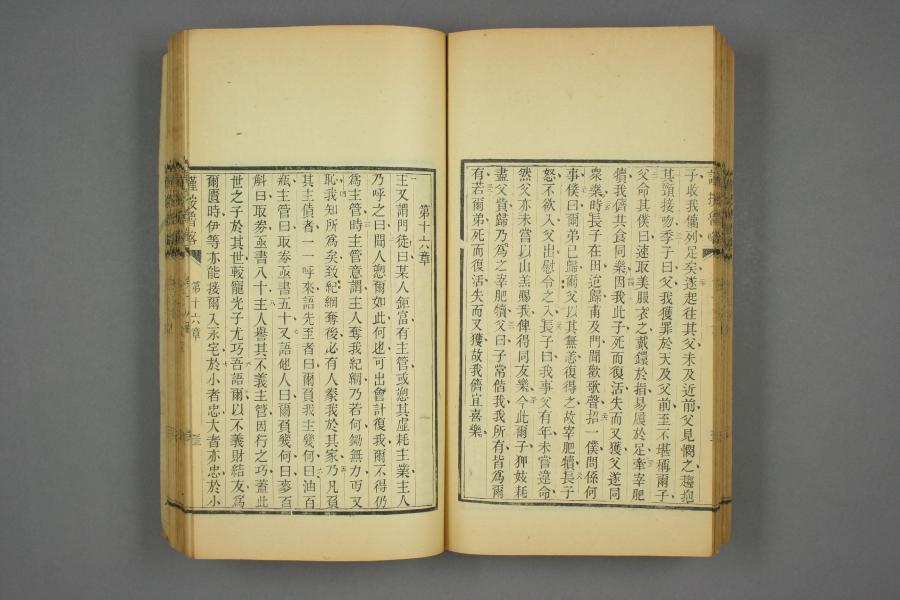 子收我傭列足矣遂起往其父未及近前父見憫之趨抱
其頸接吻季子曰父我獲罪於天及父前至不堪稱爾子
父命其僕曰速取美服衣之戴鐶於指易履於足牽宰肥
犢我儕共食同樂因我此子死而復活失而又獲父遂同
衆樂時長子在田迨歸甫及門聞歡歌聲招一僕問係何
事僕曰爾弟已歸爾父以其無恙復得之故宰肥犢長子
怒不欲入父出慰令之入長子曰我事父有年未嘗違命
然父亦未嘗以山羔賜我俾得同友樂今此爾子狎妓耗
盡父貲歸乃爲之宰肥犢父曰子常偕我我所有皆爲爾
有若爾弟死而復活失而又獲故我儕宜喜樂
第十六章
主又謂門徒曰某人鉅富有主管或愬其虛耗主業主人
乃呼之曰聞人愬爾如此何也可出會計復我爾不得仍
爲主管時主管意謂主人奪我紀綱乃若何鋤無力丐又
恥我知所爲矣致紀綱奪後必有人接我於其家乃凡負
其主債者一一呼來語先至者曰爾負我主幾何曰油百
瓶主管曰取劵亟書五十又語他人曰爾負幾何曰麥百
斛曰取劵亟書八十主人譽其不義主管因行之巧蓋此
世之子於其世較寵光子尤巧吾語爾以不義財結友爲
爾匱時伊等亦能接爾入永宅於小者忠大者亦忠於小
第十六章